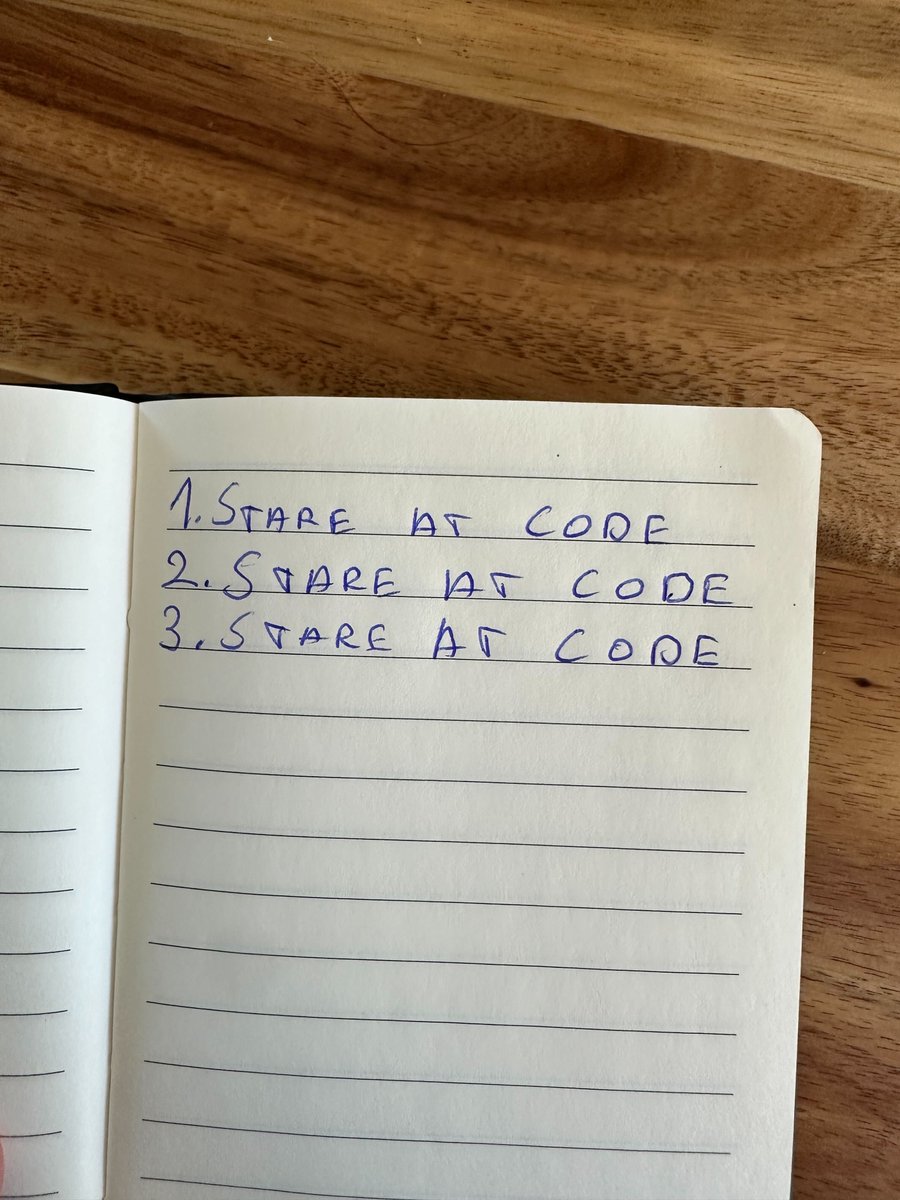 1. STARE AT CODE
2. STARE AT CODE
3. STARE AT CODE